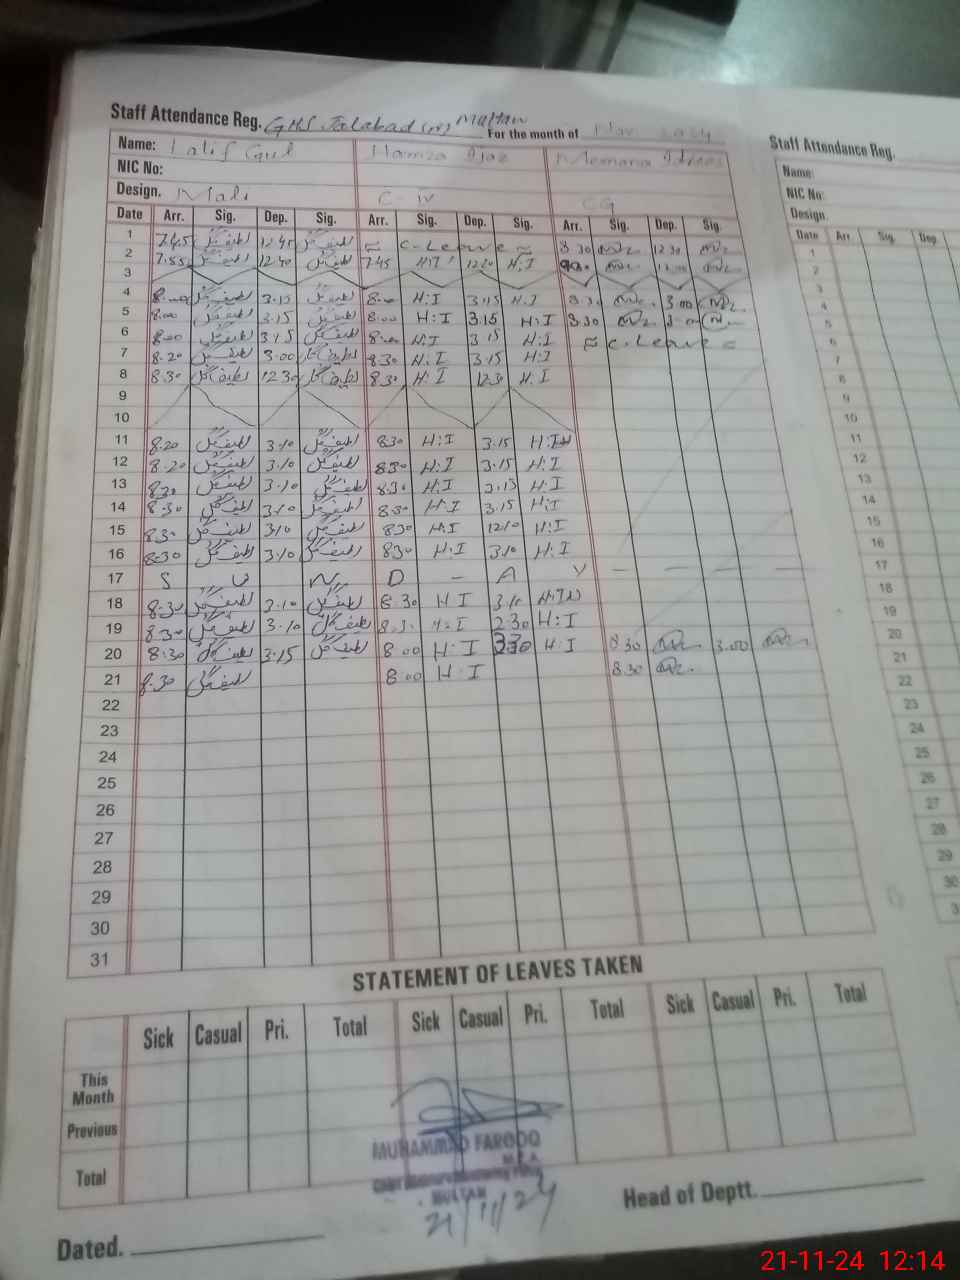 Staff Attendance Reg. GHS Jalabad (m) Multan For the month of Nov 2024
Name: Latif Gul Hamza Ijaz
NIC No:
Design. Mali C-IV CG
Date Arr. Sig. Dep. Sig. Arr. Sig. Dep. Sig. Arr. Sig. Dep. Sig.
1 7.45 لطیف گل 12.45 لطیف گل C-Leave 8.30 12.30
2 7.55 لطیف گل 12.40 لطیف گل 7.45 H:I 12.20 H:I
3
4 8.00 لطیف گل 3.15 لطیف گل 8.00 H:I 3.15 H.I 8.30 3.00
5 8.00 لطیف گل 3.15 لطیف گل 8.00 H:I 3.15 H:I 8.30 3.00
6 8.00 لطیف گل 3.15 لطیف گل 8.00 H:I 3.15 H:I C-Leave
7 8.20 لطیف گل 3.00 لطیف گل 8.30 H:I 3.15 H:I
8 8.30 لطیف گل 12.30 لطیف گل 8.30 H:I 12.30 H:I
9
10
11 8.20 لطیف گل 3.10 لطیف گل 8.30 H:I 3.15 H:I
12 8.20 لطیف گل 3.10 لطیف گل 8.30 H:I 3.15 H:I
13 8.30 لطیف گل 3.10 لطیف گل 8.30 H:I 3.15 H:I
14 8.30 لطیف گل 3.10 لطیف گل 8.30 H:I 3.15 H:I
15 8.30 لطیف گل 3.10 لطیف گل 8.30 H:I 12.10 H:I
16 8.30 لطیف گل 3.10 لطیف گل 8.30 H:I 3.10 H:I
17 S U N D - A Y - - - -
18 8.30 لطیف گل 3.10 لطیف گل 8.30 H I 3.10 H:I
19 8.30 لطیف گل 3.10 لطیف گل 8.30 H:I 2.30 H:I
20 8.30 لطیف گل 3.15 لطیف گل 8.00 H:I 3.30 H I 8.30 3.00
21 8.30 لطیف گل 8.00 H.I 8.30
22
23
24
25
26
27
28
29
30
31
STATEMENT OF LEAVES TAKEN
Sick Casual Pri. Total Sick Casual Pri. Total Sick Casual Pri. Total
This Month
Previous
Total
MUHAMMAD FAROOQ
MULTAN
21/11/24
Dated. Head of Deptt.
Staff Attendance Reg.
Name:
NIC No:
Design.
Date Arr Sig. Dep.
1
2
3
4
5
6
7
8
9
10
11
12
13
14
15
16
17
18
19
20
21
22
23
24
25
26
27
28
29
30
3
21-11-24 12:14